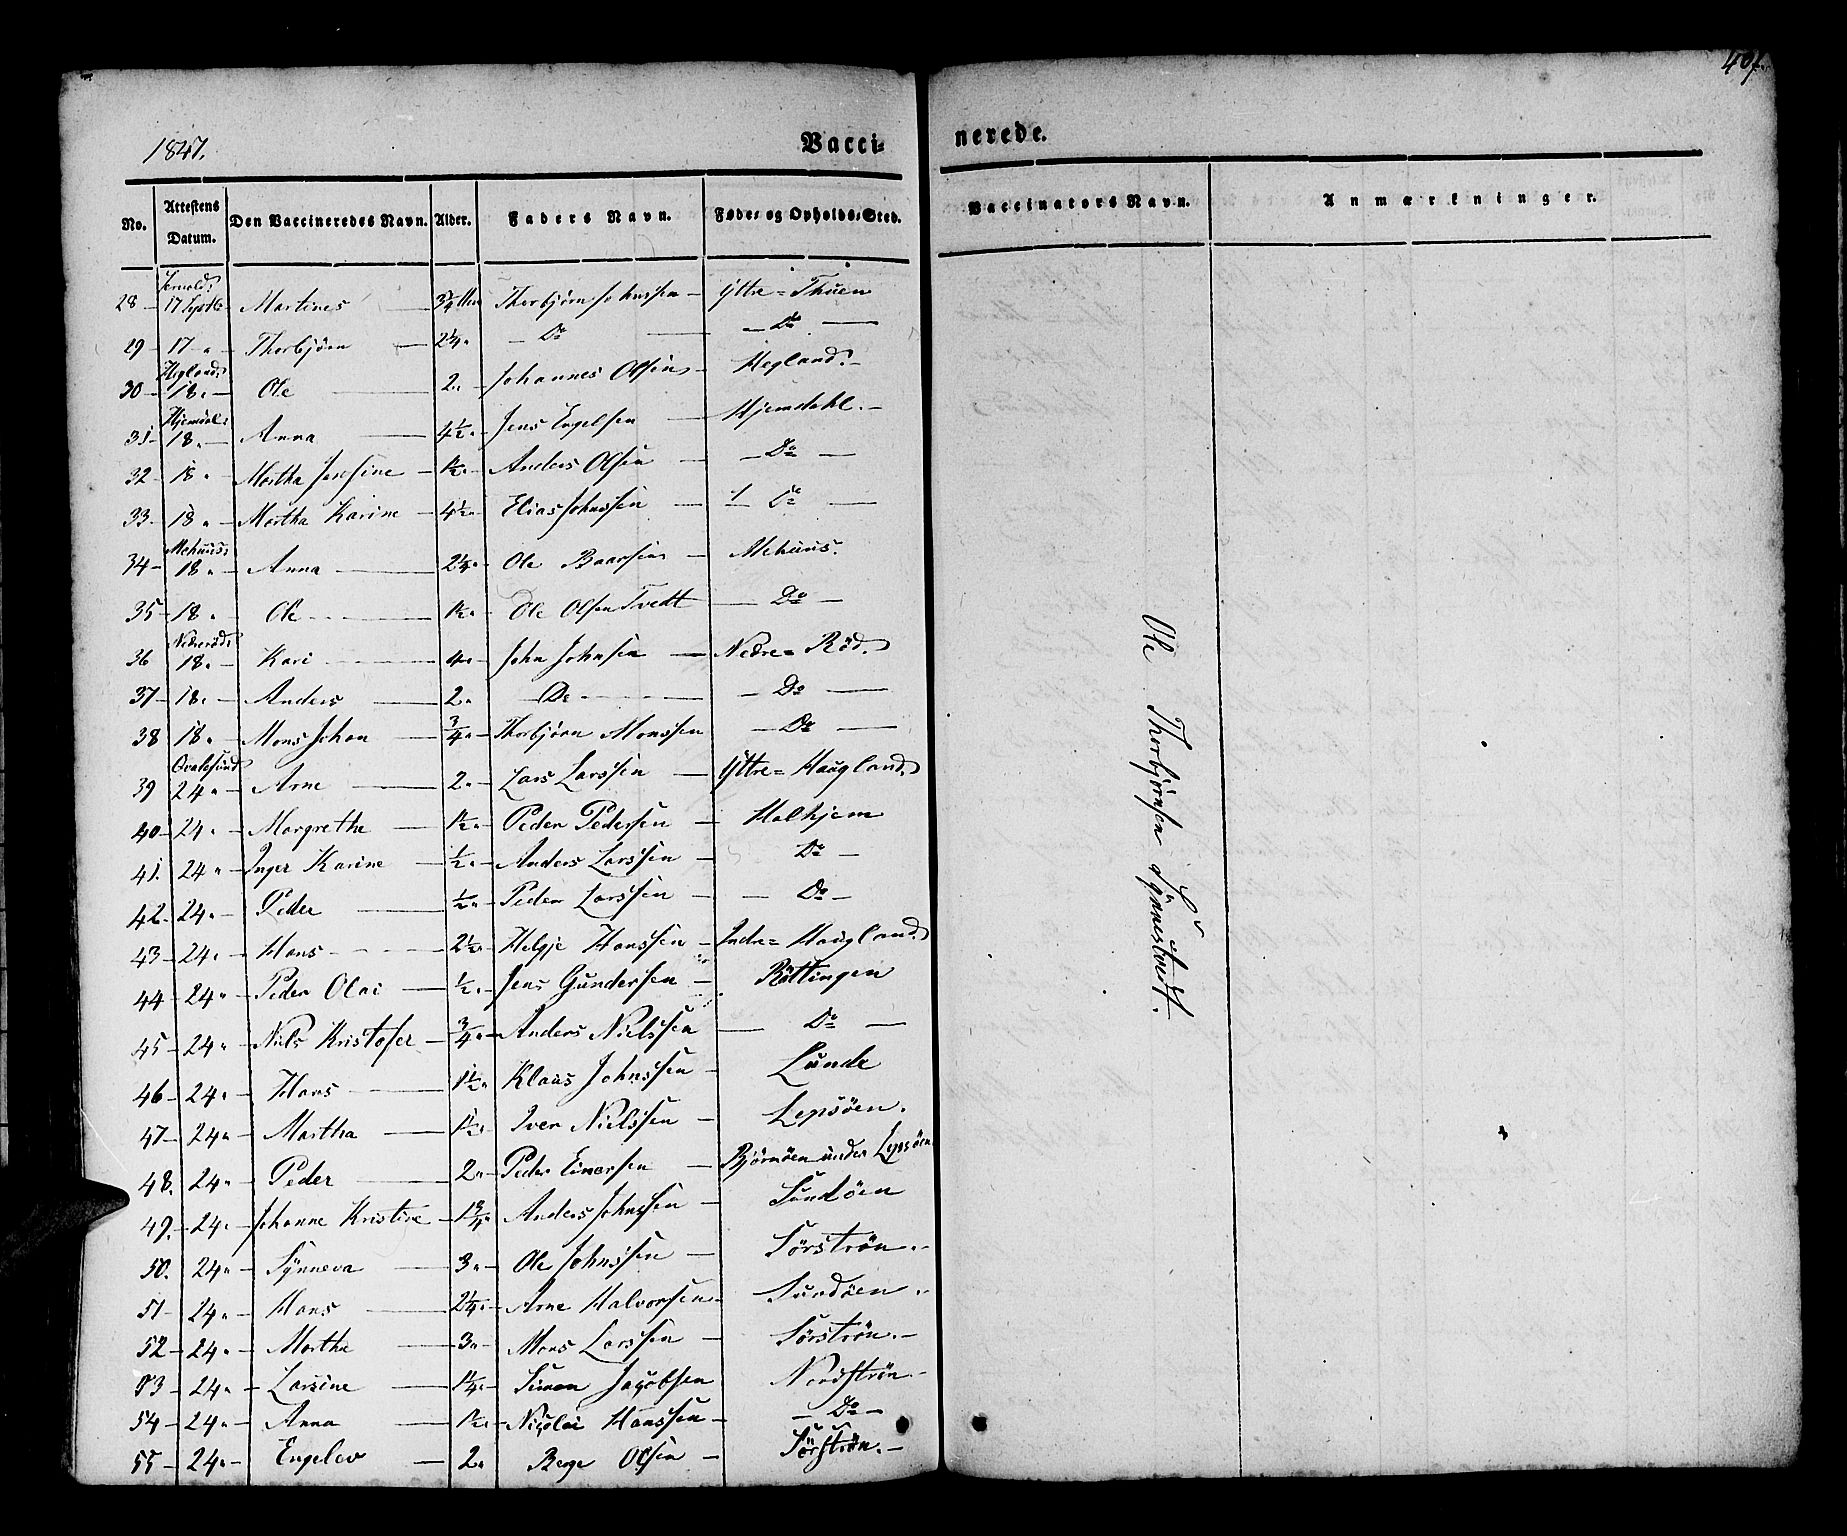 407.
1847. Vacci- nerede.
No. Attestens Datum. Den Vaccineredes Navn. Alder. Faders Navn. Føde- og Opholds-Sted. Vaccinators Navn. Anmærkninger.
28 - 17 Martines — 3/4 Thorbjørn Johnssen - Yttre= Thuen
29 - 17 " - Thorbjörn — 2 1/4 " - Do — — Do —
Hegland
30 - 18 " - Ole — 2 " - Johannes Olsen - Hegland. -
Hjemdal
31 - 18 " - Anna — 4 1/2 " - Jens Engelsen — Hjemdahl. -
32 - 18 " - Martha Josefine - 1 1/2 " - Anders Olsen — — Do —
33 - 18 " - Martha Karine - 4 1/2 " - Elias Johnssen — Do —
Mehuus
34 - 18 " - Anna — 2 1/4 " - Ole Baarsen — Mehuus.
35 - 18 " Ole — 1 1/2 " Ole Olsen Tvedt — Do —
Nedreröd
36 18 " - Kari — 4 " - John Johnsen — Nedre= Röd.
37 - 18 " - Anders — 2 " — Do — — Do —
38 18 " - Mons Johan — 3/4 " - Thorbjörn Monssen — Do —
Qvalesund
39 24 " - Arne — 2 " - Lars Larssen — Yttre= Haugland.
40 - 24 " - Margrethe — 1 1/2 " - Peder Pedersen — Halhjem
41. 24 " - Inger Karine — 1/2 " - Anders Larssen — Do —
42 - 24 " - Peder — 1/2 " - Peder Larssen — — Do —
43 - 24 " - Hans — 2 1/2 " - Helgje Hanssen - Indre= Haugland.
44 - 24 " - Peder Olai — 1/2 " - Jens Gundersen - Röttingen
45 - 24 " - Nils Kristofer - 3/4 " - Anders Nielssen — Do —
46 - 24 " - Hans — 1 1/2 " Klaus Johnssen - Lunde
47 - 24 " - Martha — 1 1/2 " Iver Nielssen — Lepsöen.
48. 24 " - Peder — 2 " - Peder Einersen — Björnöen under Lepsöen
49. - 24 " - Johanne Kristine - 1 3/4 " Anders Johnssen — Sundöen
50. 24 " - Synneva — 3 " - Ole Johnssen — Sörströn. -
51 - 24 " - Hans — 2 1/4 " - Arne Halvorsen - Sundöen. -
52 - 24 " - Marthe — 3 " Mons Larssen — Sörströn. -
53 - 24 " - Larsine — 1 1/4 " - Simon Jacobsen Nordströn. -
54 - 24 " - Anna — 1 1/2 " - Nicolai Hanssen - — Do —
55 - 24 " - Engelev — 2 " Berge Olsen — Sörströn. -
Ole Thorbjörnsen